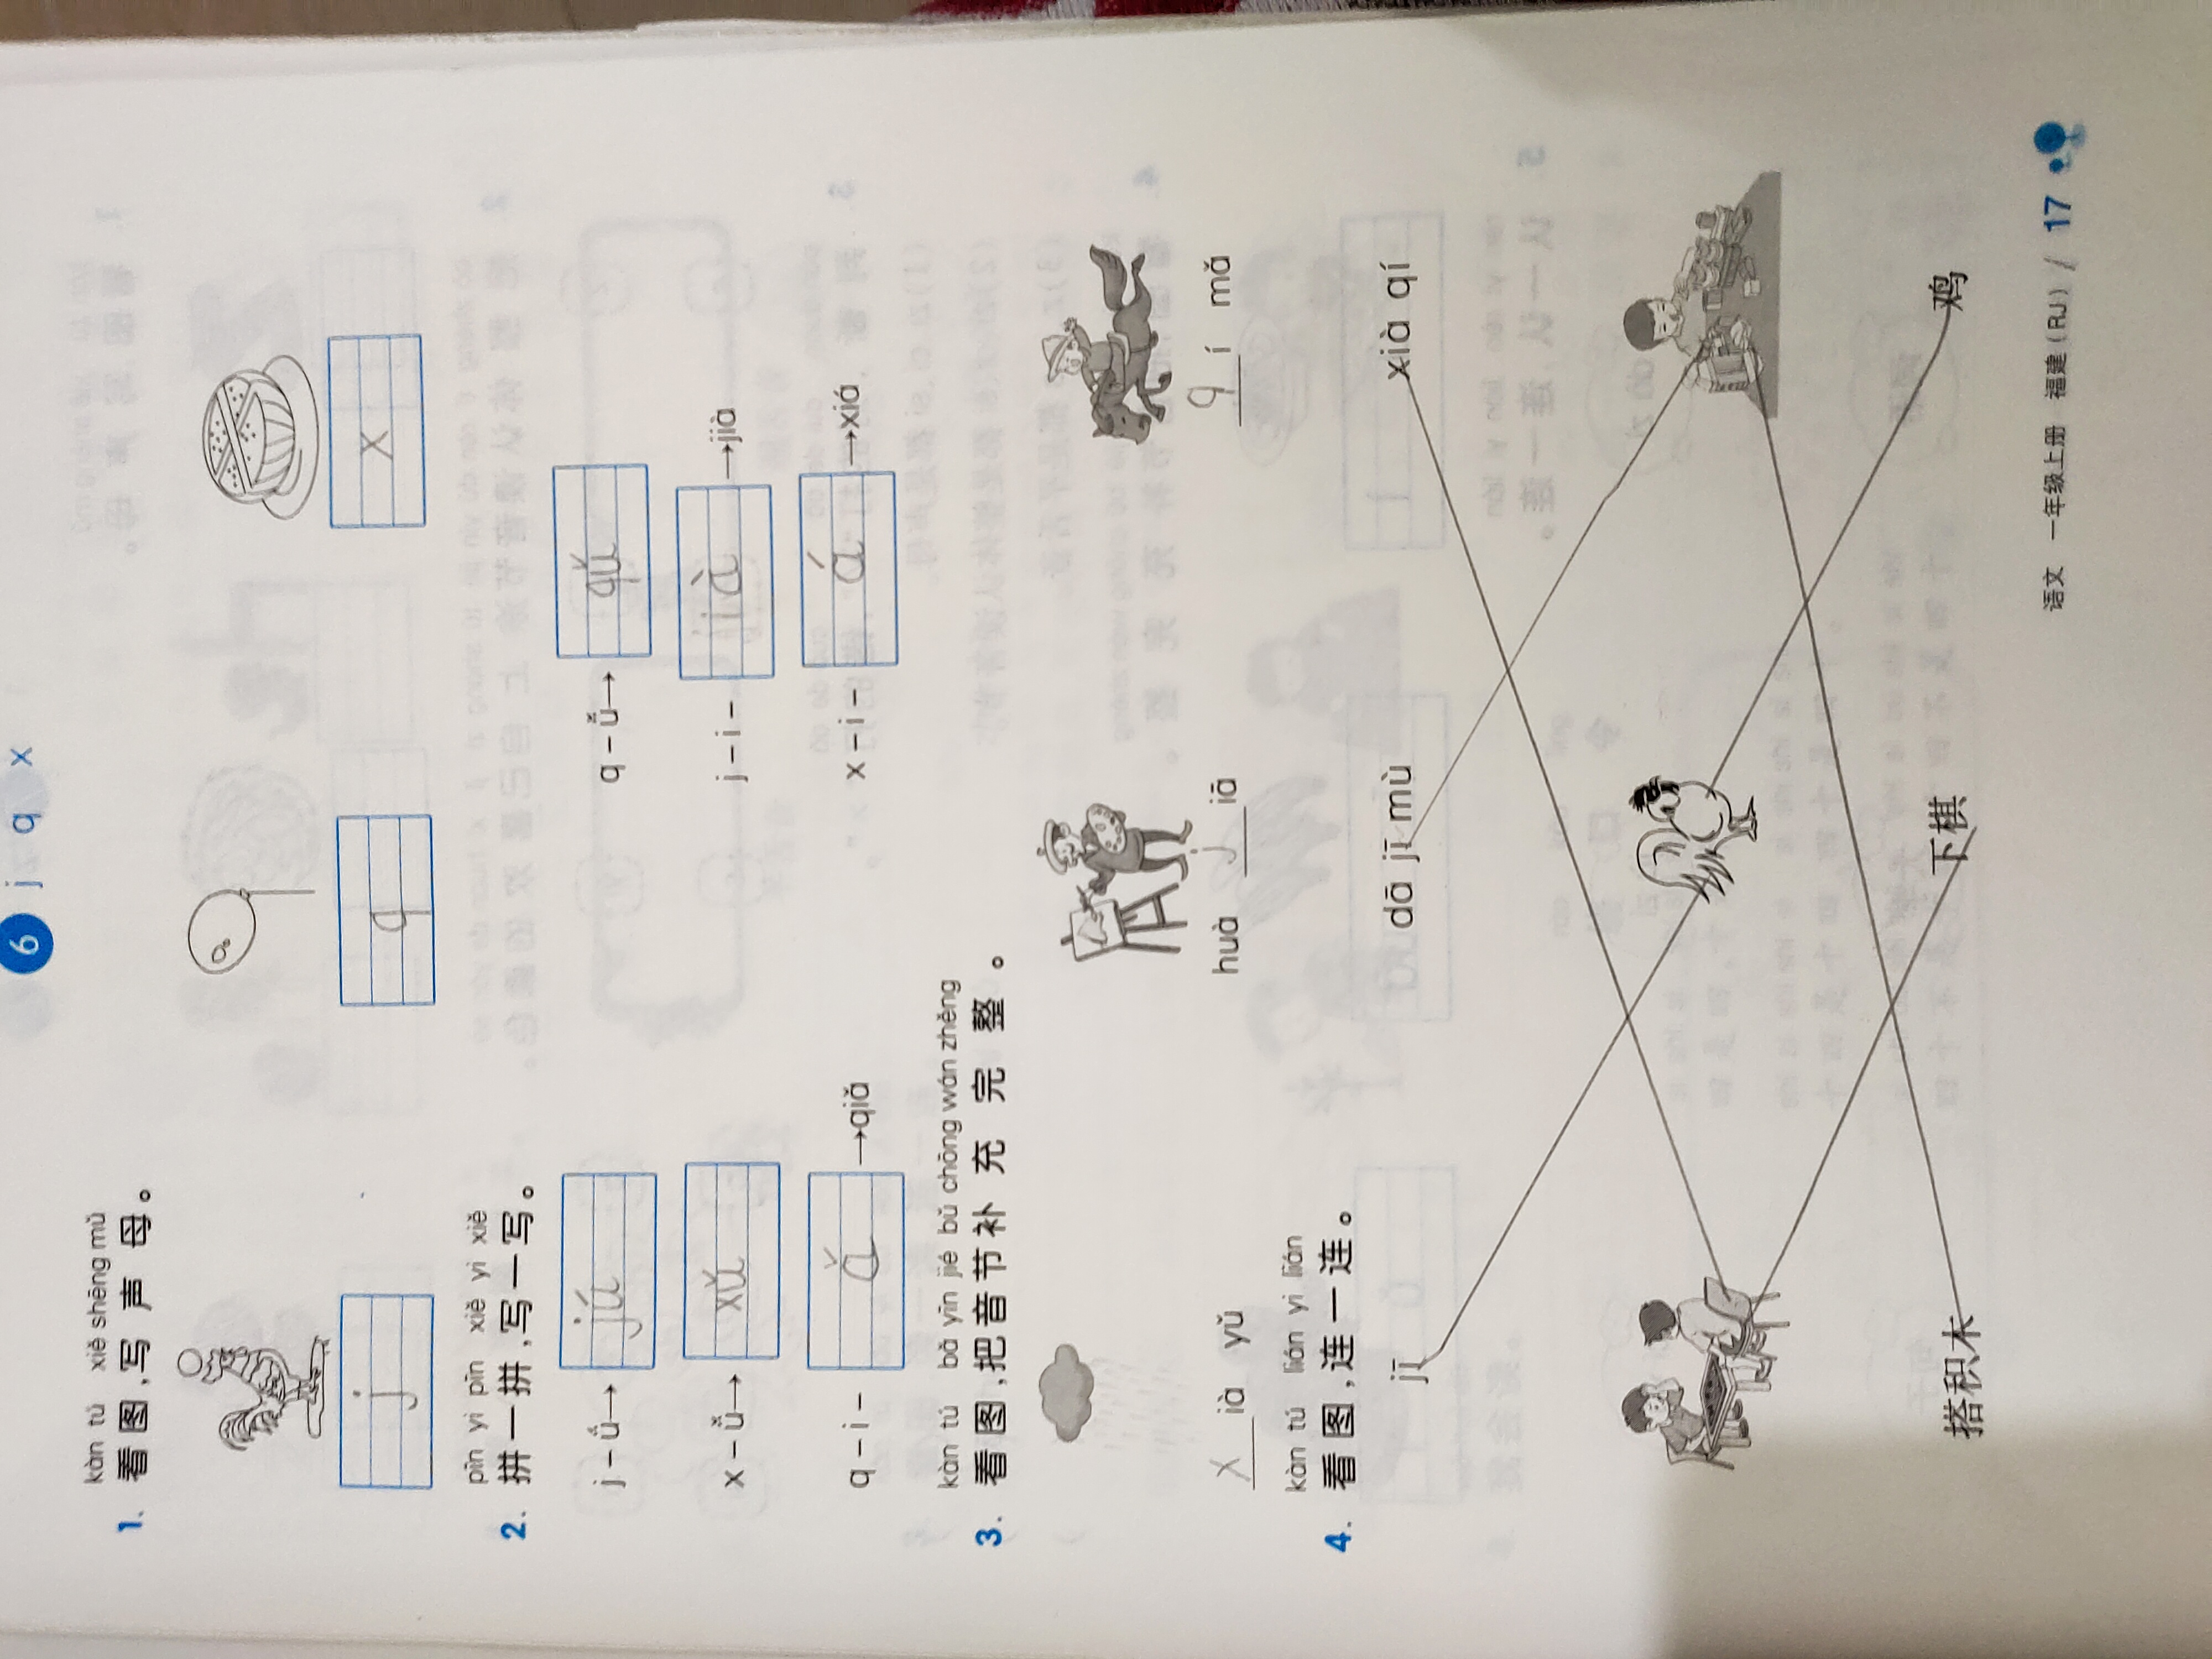 6 j q x
kàn tú xiě shēng mǔ
1. 看图,写声母。
j q x
pīn yi pīn xiě yi xiě
2. 拼一拼,写一写。
j – ǘ→ jú q – ǚ→ qǔ
x – ǚ→ xǔ j – i – ià →jià
q – i – ǎ →qiǎ x – i – á →xiá
kàn tú bǎ yīn jié bǔ chōng wán zhěng
3. 看图,把音节补充完整。
x ià yǔ huà j iā q í mǎ
kàn tú lián yi lián
4. 看图,连一连。
jī dā jī mù xià qí
搭积木 下棋 鸡
语文 一年级上册 福建(RJ) / 17